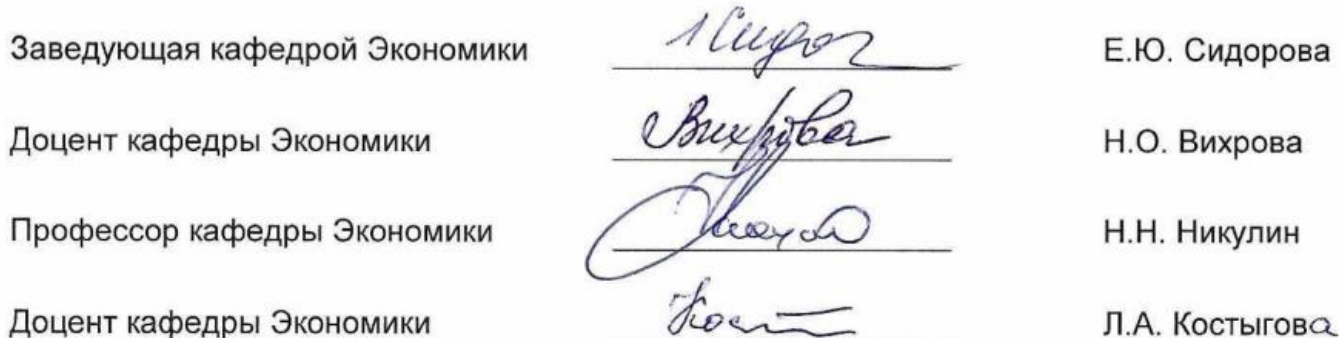 Заведующая кафедрой Экономики Е.Ю. Сидорова
Доцент кафедры Экономики Вихрова Н.О. Вихрова
Профессор кафедры Экономики Н.Н. Никулин
Доцент кафедры Экономики Л.А. Костыгова